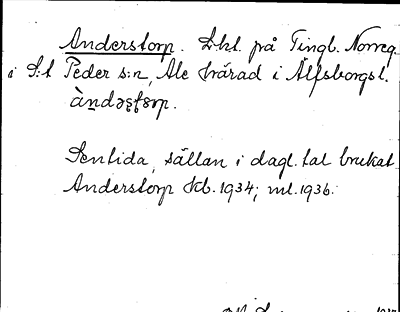 Anderstorp. Lht. på Tingl. Norreg.
i S:t Peder s:n, Ale härad i Älfsborgs l.
Sentida, sällan i dagl. tal brukat
Anderstorp Kb. 1934; ml. 1936.